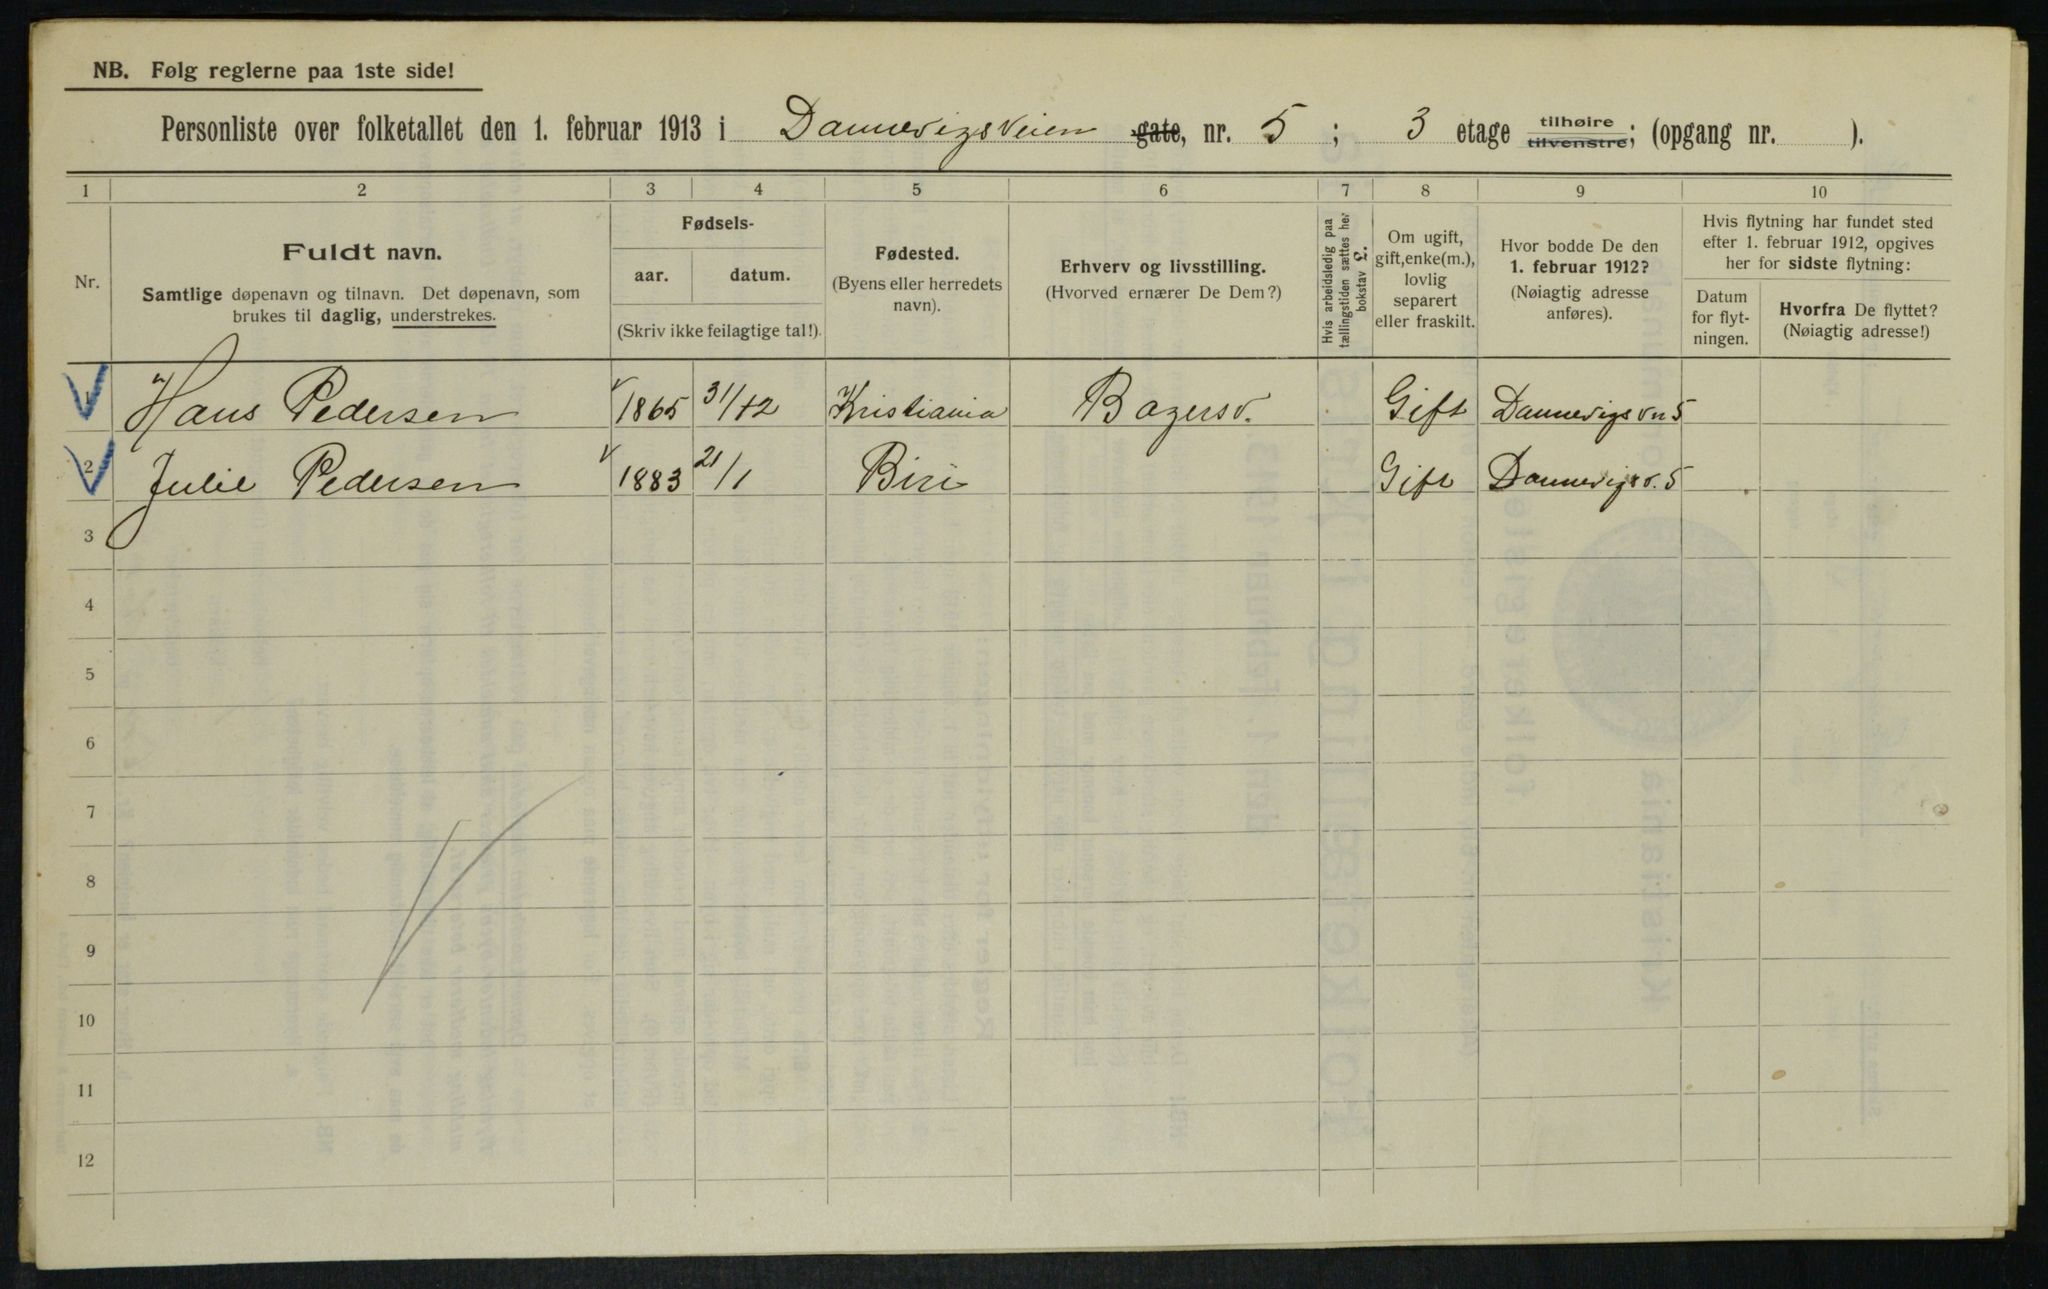 NB. Følg reglerne paa 1ste side!
Personliste over folketallet den 1. februar 1913 i Dannevigsveien gate, nr. 5 ; 3 etage tilhøire tilvenstre; (opgang nr. ).
1 2 3 4 5 6 7 8 9 10
Nr.
Fuldt navn.
Samtlige døpenavn og tilnavn. Det døpenavn, som
brukes til daglig, understrekes.
Fødsels-
aar. datum.
(Skriv ikke feilagtige tal!).
Fødested.
(Byens eller herredets
navn).
Erhverv og livsstilling.
(Hvorved ernærer De Dem?)
Hvis arbeidsledig paa
tællingstiden sættes her
bokstav L.
Om ugift,
gift, enke(m.),
lovlig
separert
eller fraskilt.
Hvor bodde De den
1. februar 1912?
(Nøiagtig adresse
anføres).
Hvis flytning har fundet sted
efter 1. februar 1912, opgives
her for sidste flytning:
Datum
for flyt-
ningen.
Hvorfra De flyttet?
(Nøiagtig adresse!)
1 Hans Pedersen 1865 31/12 Kristiania Bagersv. Gift Dannevigsvn 5
2 Julie Pedersen 1883 21/1 Biri Gift Dannevigsv. 5
3
4
5
6
7
8
9
10
11
12